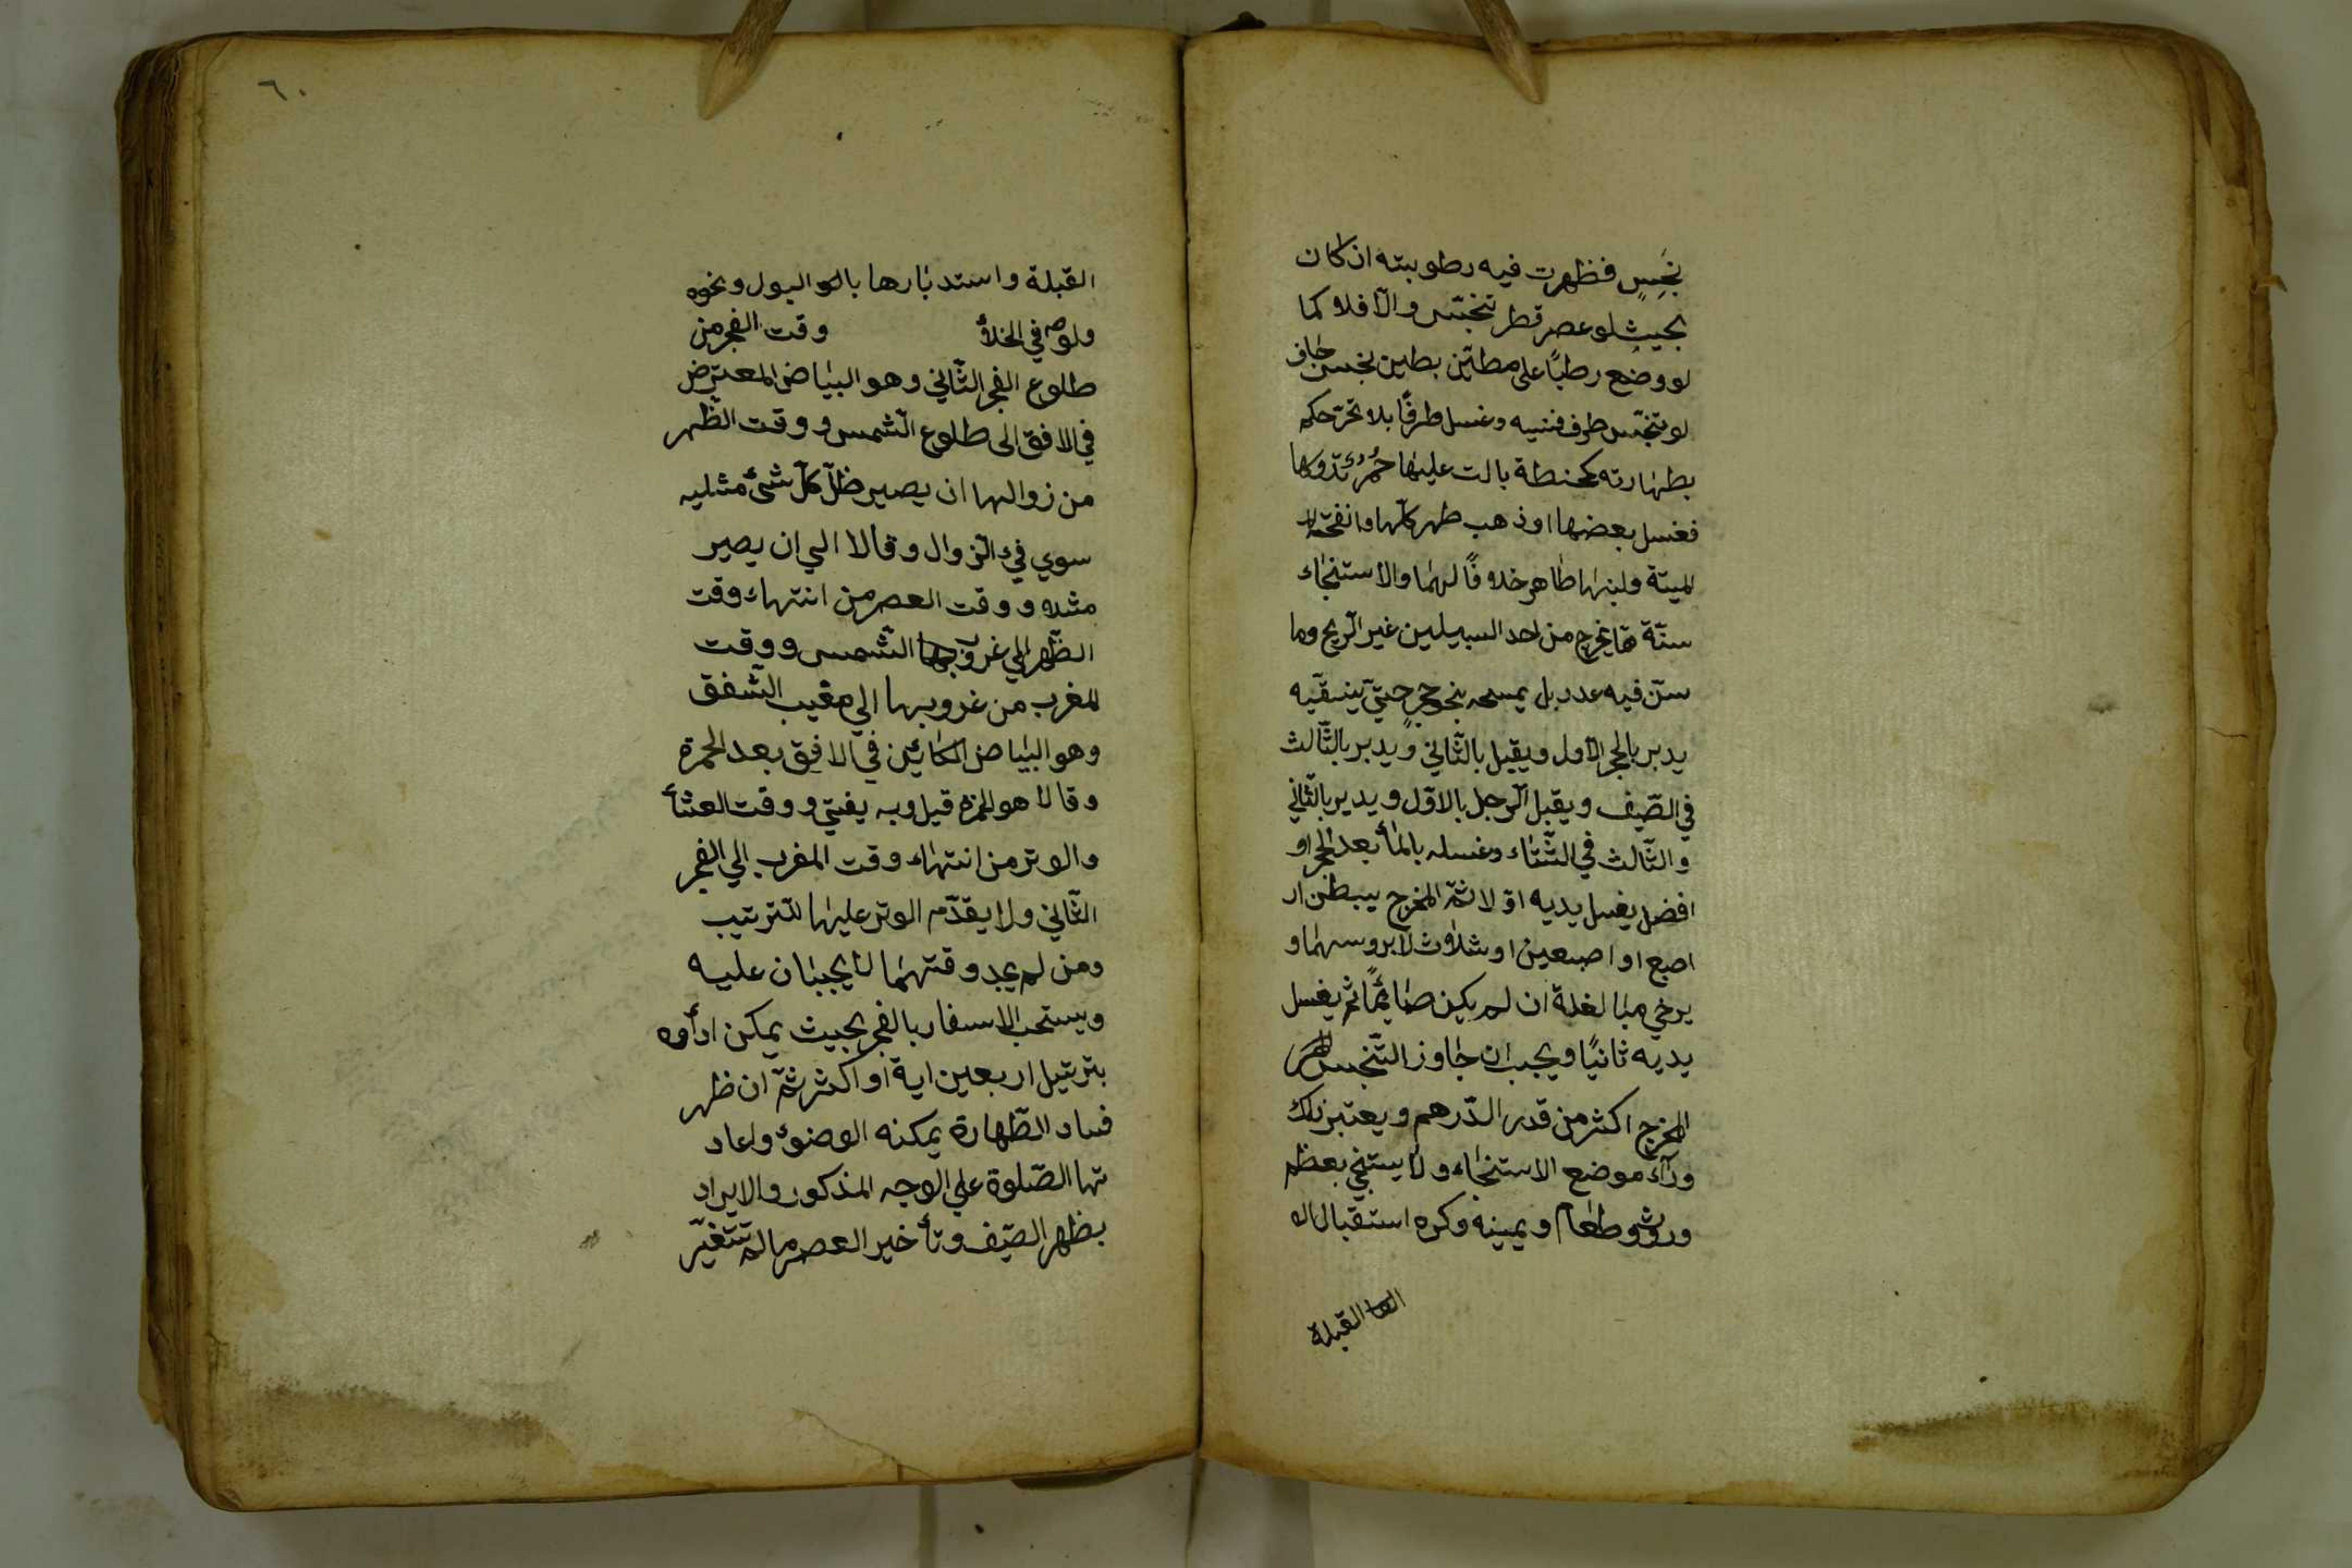 نجس فظهرت فيه رطوبته ان كان
بحيث لو عصر قطر تنجّس والّا فلا كما
لو وضع رطبًا على مطيّن بطين نجس جاف
لو تنجّس طرف فنسيه وغسل طرفًا بلا تحرّ حكم
بطهارته كحنطة بالت عليها حُمُرٌ تدوسها
فغسل بعضها او ذهب طهر كلّها وانفحّة
الميتة ولبنها طاهر خلافًا لهما والاستنجاء
سنّة مما يخرج من احد السبيلين غير الرّيح وما
سنّ فيه عدد بل يمسحه بنحو حجرٍ حتّى ينقّيه
يدبر بالحجر الاول ويقبل بالثّاني ويدبر بالثّالث
في الصّيف ويقبل الرّجل بالاوّل ويدبر بالثّاني
والثّالث في الشّتاء وغسله بالمأ بعد الحجر او
افضل يغسل يديه اوّلا ثمّ المخرج يبطن ار
اصبع او اصبعين او ثلاث لا بروسهما و
يرخي مبالغة ان لم يكن صائمًا ثم يغسل
يديه ثانيًا ويجب ان جاوز النّجس
المخرج اكثر من قدر الدّرهم ويعتبر ذلك
ورآء موضع الاستنجاء ولا يستنجي بعظم
وروث وطعام ويمينه وكره استقبال ال
القبلة
٦٠
القبلة واستدبارها بال البول ونحوه
ولو في الخلأ وقت الفجر من
طلوع الفجر الثّاني وهو البياض المعترض
في الافق الى طلوع الشّمس ووقت الظّهر
من زوالها ان يصير ظلّ كلّ شئ مثليه
سوي فيء الزّوال وقالا الي ان يصير
مثله ووقت العصر من انتهاء وقت
الظّهر الي غروب الشّمس ووقت
المغرب من غروبها الي مغيب الشّفق
وهو البياض الكائن في الافق بعد الحمرة
وقالا هو الحمرة قيل وبه يفتي ووقت العشأ
والوتر من انتهاء وقت المغرب الي الفجر
الثّاني ولا يقدّم الوتر عليها للتّرتيب
ومن لم يجد وقتهما لا يجبان عليه
ويستحب الاسفار بالفجر بحيث يمكن ادأوه
بترتيل اربعين اية او اكثر ثمّ ان ظهر
فساد الطّهارة يمكنه الوضوء واعاد
تها الصّلوة علي الوجه المذكور والابراد
بظهر الصّيف وتأخير العصر مالم تتغيّر